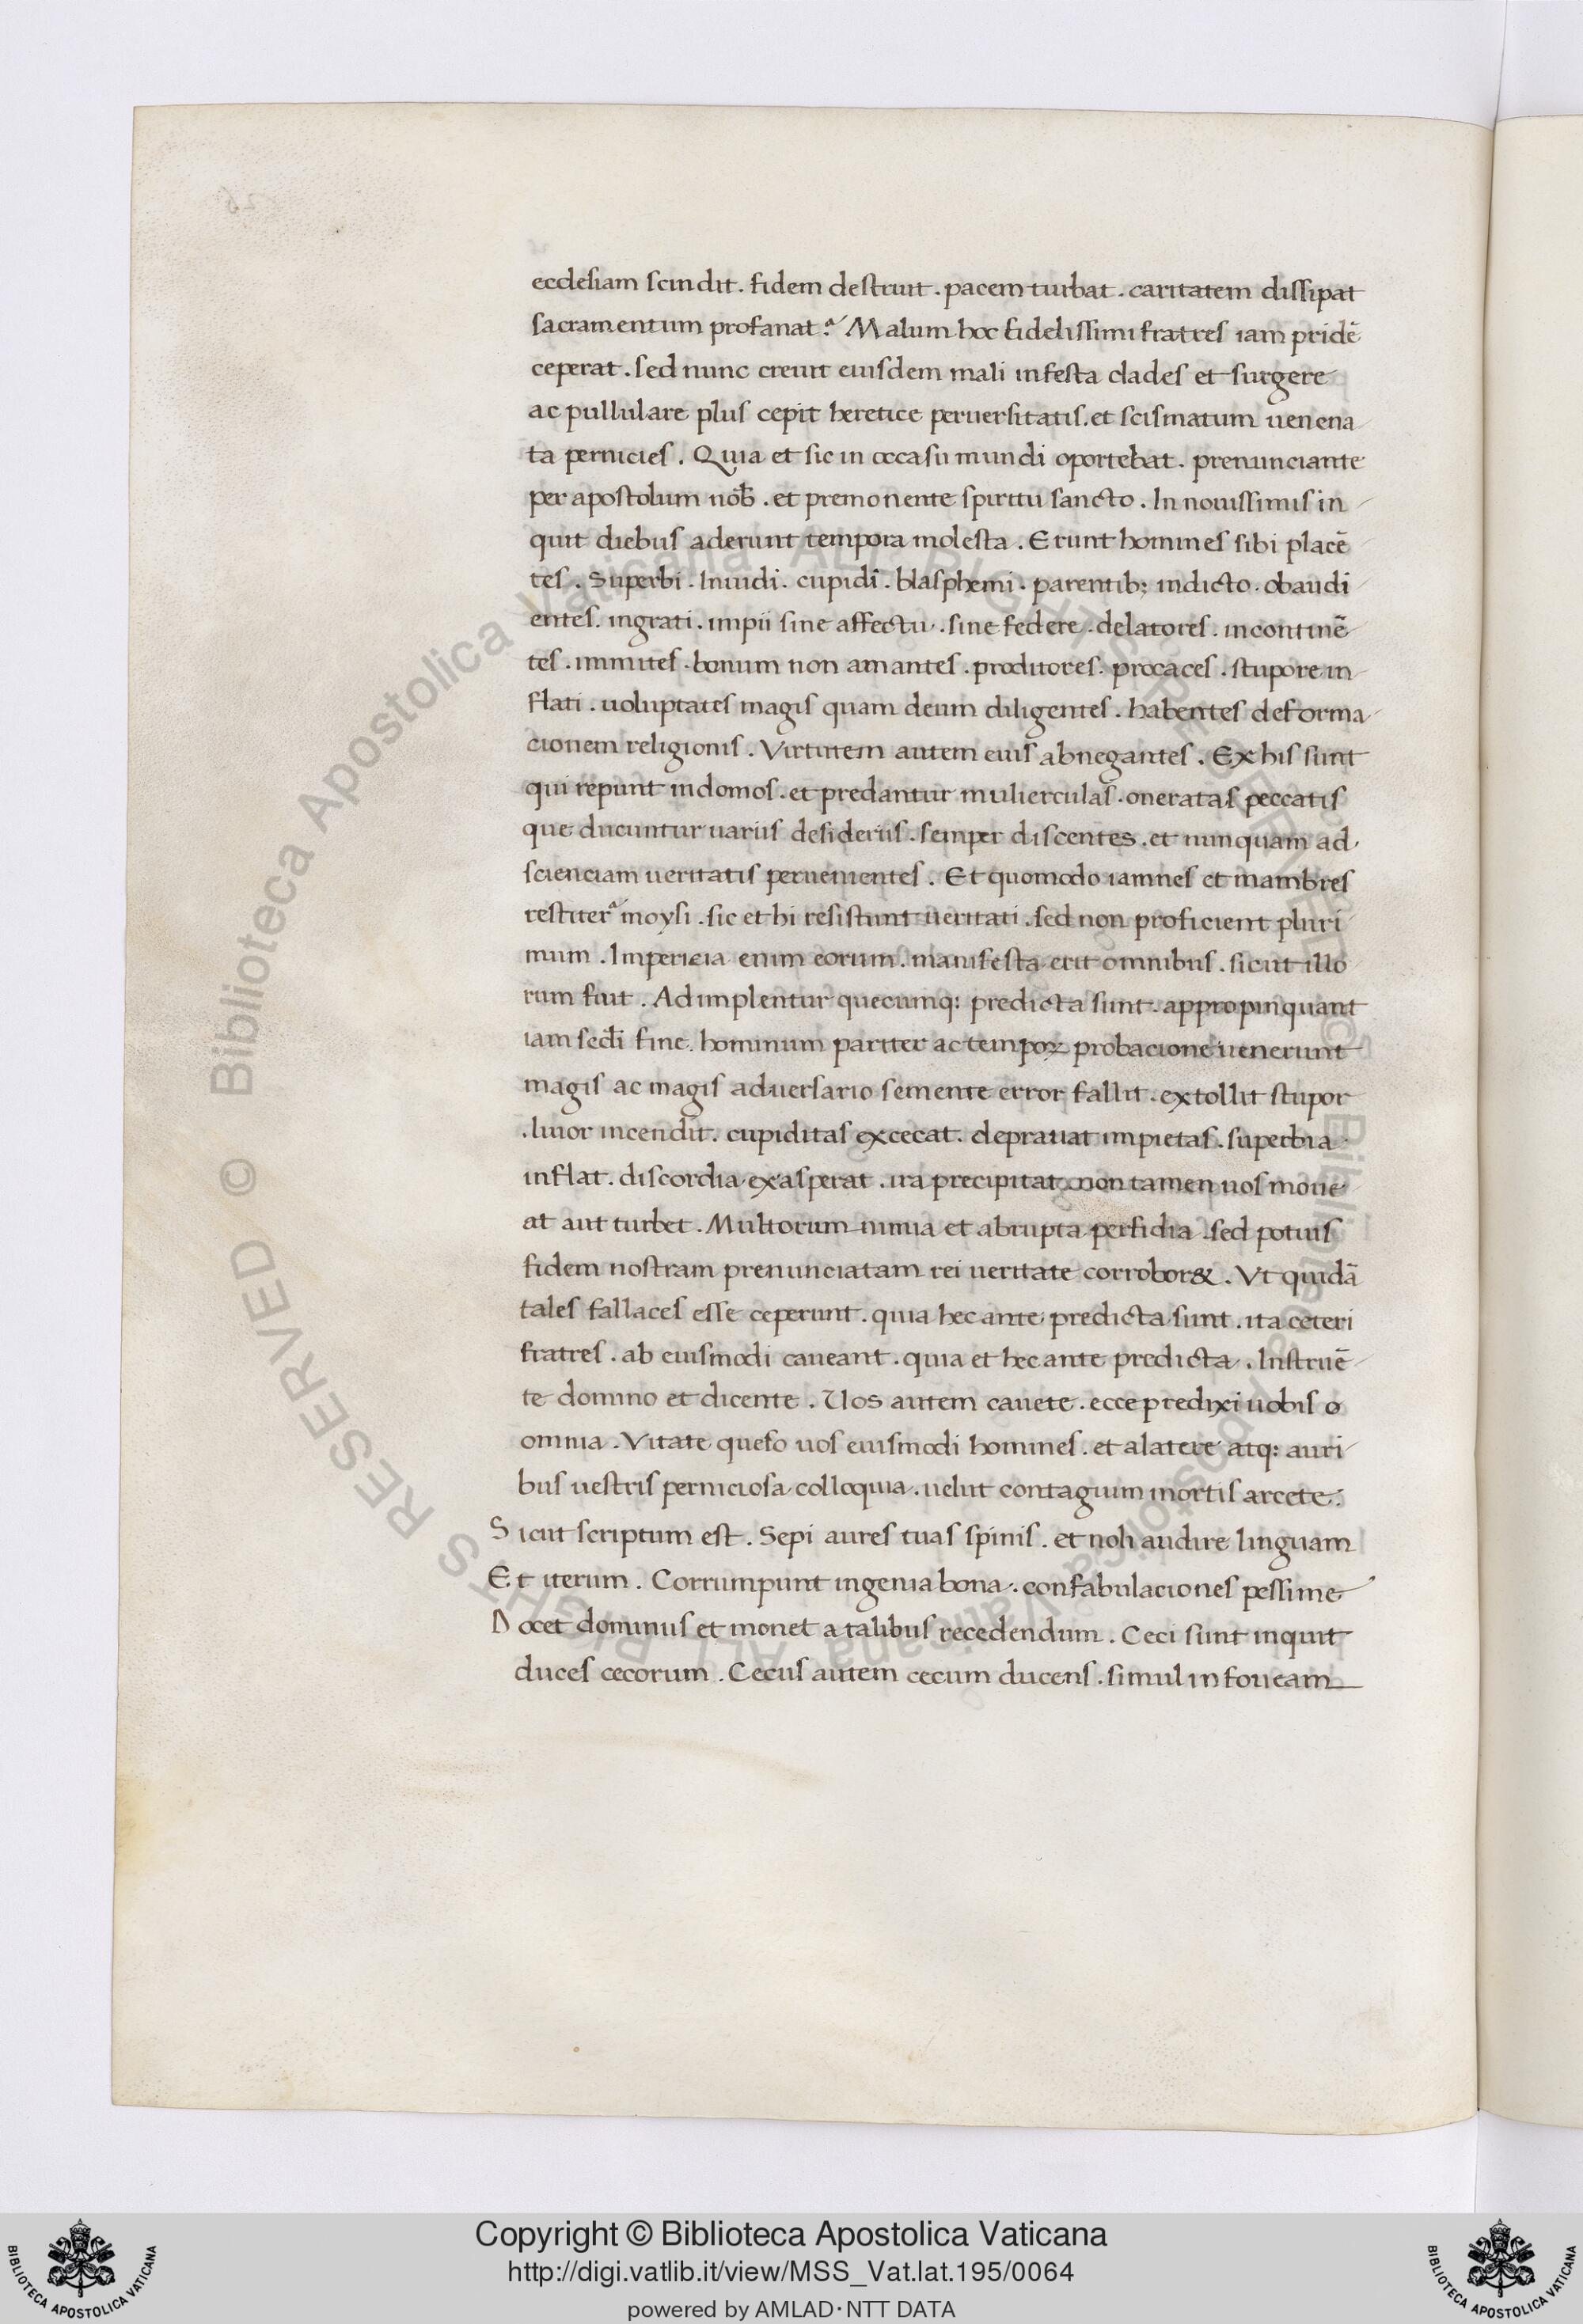 ecclesiam scindit . fidem destruit . pacem turbat . caritatem dissipat
sacramentum profanat : Malum hoc fidelissimi fratres iam pridē
ceperat . sed nunc creuit eiusdem mali infesta clades et surgere
ac pullulare plus cepit heretice peruersitatis . et scismatum uenena
ta pernicies . Quia et sic in occasu mundi oportebat . prenunciante
per apostolum nob̄ . et premonente spiritu sancto . In nouissimis in
quit diebus aderunt tempora molesta . Erunt homines sibi placē
tes . Superbi . Inuidi . cupidi . blasphemi . parentib; indicto . obaudi
entes . ingrati . impii sine affectu . sine federe . delatores . incontinē
tes . inmites . bonum non amantes . proditores . procaces . stupore in
flati . uoluptates magis quam deum diligentes . habentes deforma
cionem religionis . Virtutem autem eius abnegantes . Ex his sunt
qui repunt in domos . et predantur mulierculas . oneratas peccatis
que ducuntur uariis desideriis . semper discentes . et nunquam ad
scienciam ueritatis peruenientes . Et quomodo iamnes et mambres
restiter̄ moysi . sic et hi resistunt ueritati . sed non proficient pluri
mum . Impericia enim eorum . manifesta erit omnibus . sicut illo
rum fuit . Adimplentur quecumq: predicta sunt . appropinquant
iam secłi fine . hominum pariter ac tempoꝝ probacione uenerunt
magis ac magis aduersario semente error fallit . extollit stupor
. liuor incendit . cupiditas excecat . deprauat impietas . superbia
inflat . discordia exasperat . ira precipitat . non tamen uos moue
at aut turbet . Multorum nimia et abrupta perfidia . sed potius
fidem nostram prenunciatam rei ueritate corrobor& . Vt quidā
tales fallaces esse ceperunt . quia hec ante predicta sunt . ita ceteri
fratres . ab eiusmodi caueant . quia et hec ante predicta . Instruē
te domino et dicente . Uos autem cauete . ecce predixi uobis o
omnia . Vitate queso uos eiusmodi homines . et alatere atq: auri
bus uestris perniciosa colloquia . uelut contagium mortis arcete .
Sicut scriptum est . Sepi aures tuas spinis . et noli audire linguam
Et iterum . Corrumpunt ingenia bona . confabulaciones pessime
Docet dominus et monet a talibus recedendum . Ceci sunt inquit
duces cecorum . Cecus autem cecum ducens . simul in foueam
© Biblioteca Apostolica Vaticana ALL RIGHTS RESERVED © Biblioteca Apostolica Vaticana ALL RIGHTS RESERVED
Copyright © Biblioteca Apostolica Vaticana
http://digi.vatlib.it/view/MSS_Vat.lat.195/0064
powered by AMLAD·NTT DATA
BIBLIOTECA APOSTOLICA VATICANA
BIBLIOTECA APOSTOLICA VATICANA